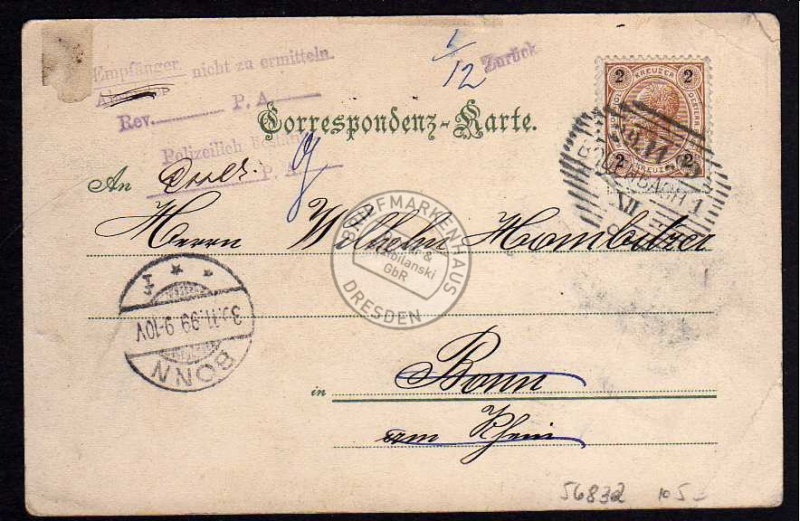 Empfänger nicht zu ermitteln.
Rev. P. A.
Polizeilich
P. A.
1/12
Zurück
Correspondenz-Karte.
2 KREUZER 2
2 2
BODENBACH 1
XII
An
Herrn Wilhelm Hombitzer
BRIEFMARKENHAUS
&
GbR
DRESDEN
BONN
30.11.99 9-10V
in Bonn
am Rhein
56832 105